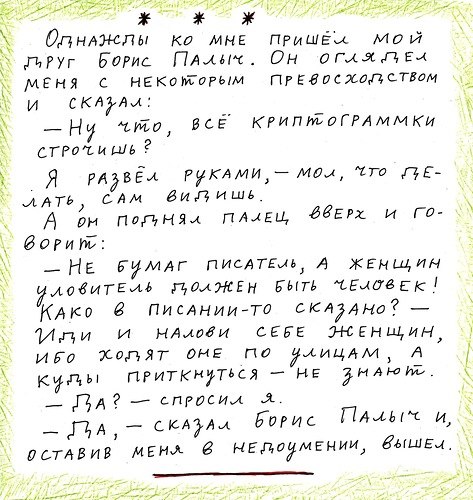 * * *
Однажды ко мне пришёл мой
друг Борис Палыч. Он оглядел
меня с некоторым превосходством
и сказал:
— Ну что, всё криптограммки
строчишь?
Я развёл руками, — мол, что де-
лать, сам видишь.
А он поднял палец вверх и го-
ворит:
— Не бумаг писатель, а женщин
уловитель должен быть человек!
Како в писании-то сказано? —
Иди и налови себе женщин,
ибо ходят оне по улицам, а
куды приткнуться — не знают.
— Да? — спросил я.
— Да, — сказал Борис Палыч и,
оставив меня в недоумении, вышел.